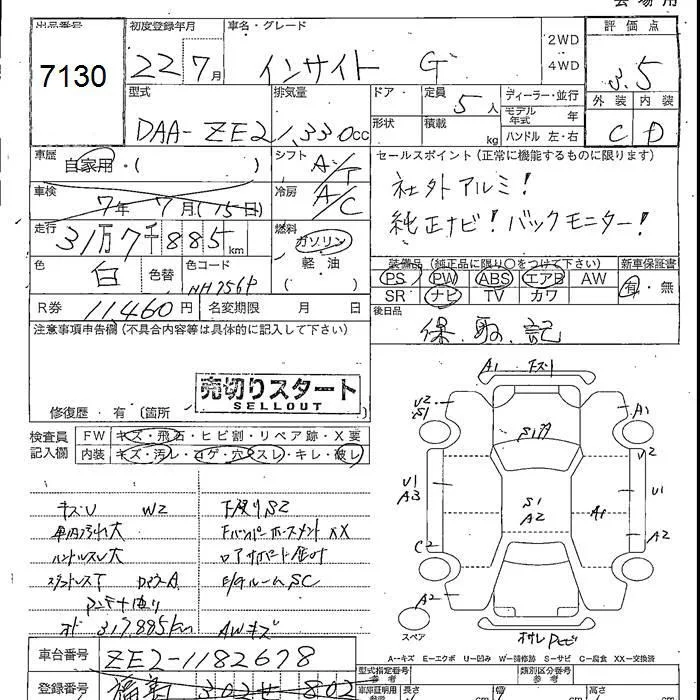 出品番号
7130
初度登録年月
22年7月
車名・グレード
インサイト G
2WD
4WD
評価点
3.5
外装 内装
C D
型式
DAA-ZE2
排気量
1,330cc
ドア・
形状
定員
5人
積載
kg
ディーラー・並行
モデル年式 年
ハンドル 左・右
車歴
自家用・( )
シフト
A/T
車検
7年7月(15日)
冷房
A/C
セールスポイント(正常に機能するものに限ります)
社外アルミ!
純正ナビ!バックモニター!
走行
31万7千885km
燃料
ガソリン
軽・油
( )
色
白
色替
色コード
NH756P
装備品(純正品に限り○をつけて下さい)
新車保証書
PS PW ABS エアB AW
SR ナビ TV カワ
有・無
R券 11,460円
名変期限 月 日
後日品
保.取.記
注意事項申告欄(不具合内容等は具体的に記入して下さい)
売切りスタート
SELLOUT
修復歴・有(箇所 )
検査員
記入欄
FW キズ・飛石・ヒビ割・リペア跡・X要
内装 キズ・汚レ・コゲ・穴・スレ・キレ・破レ
キズU W2
下廻りS2
車内汚れ大
ハンドルスレ大
E/GルームSC
317,885km
AWキズ
A1
U2
S1
A1
S1A
U2
U1
A3
S1
A2
U1
A1
C2
A2
A2
スペア
A-キズ E-エクボ U-凹み W-補修跡 S-サビ C-腐食 XX-交換済
車台番号
ZE2-1182678
登録番号
型式指定番号
参考
類別区分番号
参考